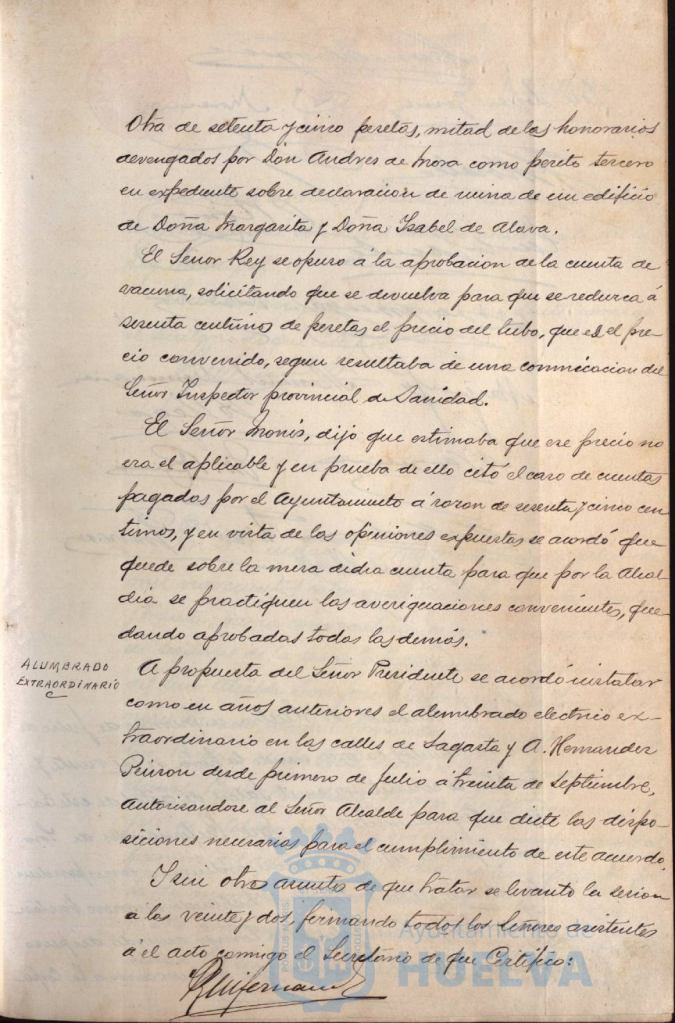 Otra de setenta y cinco pesetas, mitad de los honorarios
devengados por Don Andres de Mora como perito tercero
en expediente sobre declaracion de ruina de un edificio
de Doña Margarita y Doña Isabel de Alava.
El Señor Rey se opuso á la aprobacion de la cuenta de
vacuna, solicitando que se devuelva para que se reduzca á
sesenta centimos de pesetas el precio del tubo, que es el pre-
cio convenido, segun resultaba de una comunicacion del
Señor Inspector provincial de Sanidad.
El Señor Monís, dijo que estimaba que ese precio no
era el aplicable y en prueba de ello citó el caso de cuentas
pagadas por el Ayuntamiento á razon de sesenta y cinco cen
timos, y en vista de las opiniones expuestas se acordó que
quede sobre la mesa dicha cuenta para que por la Alcal
dia se practiquen las averiguaciones convenientes, que-
dando aprobadas todas las demás.
ALUMBRADO
EXTRAORDINARIO
A propuesta del Señor Presidente se acordó instalar
como en años anteriores el alumbrado electrico ex-
traordinario en las calles de Sagasta y A. Hernandez
Pinzon desde primero de Julio á treinta de Septiembre,
autorisandose al Señor Alcalde para que dicte las dispo-
siciones necesarias para el cumplimiento de este acuerdo.
I sin otros asuntos de que tratar se levantó la sesion
á las veinte y dos, firmando todos los Señores asistentes
á el acto conmigo el Secretario de que Certifico:
Ayuntamiento de
HUELVA